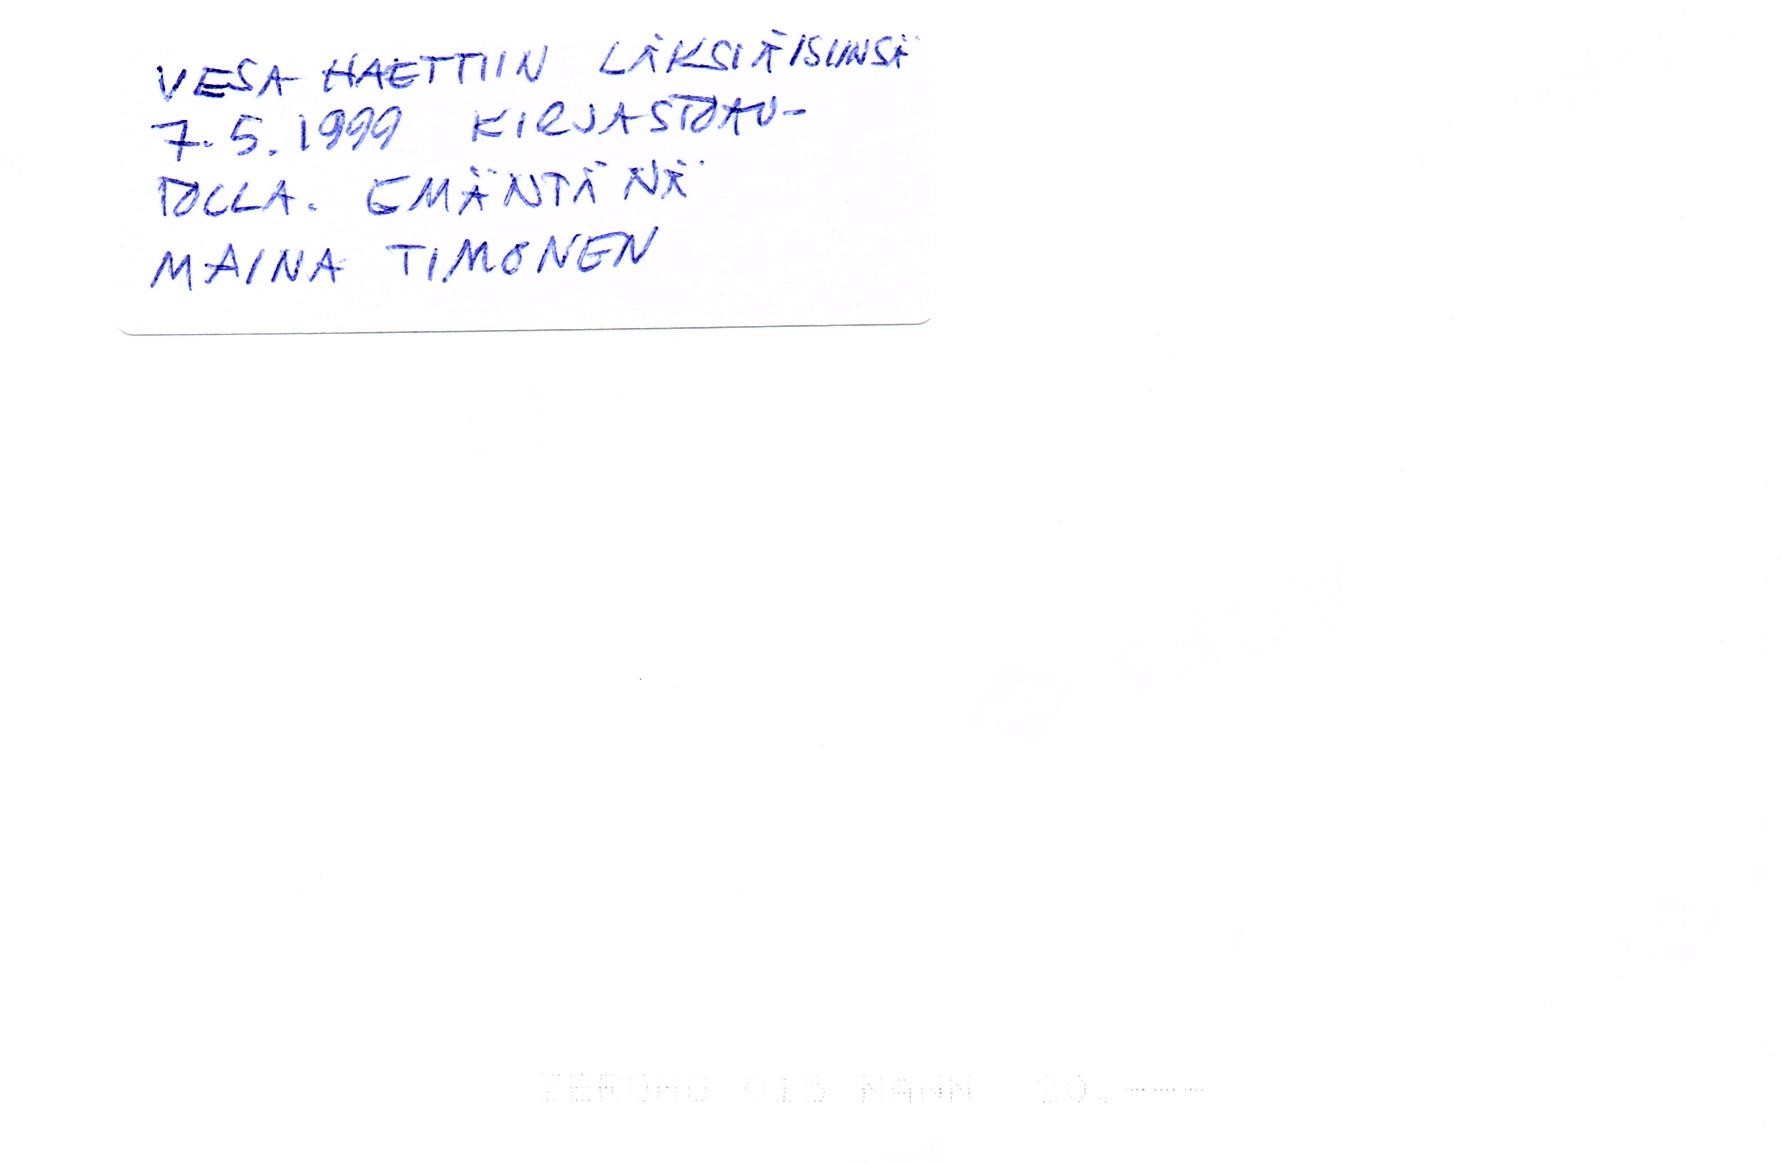 VESA HAETTIIN LÄKSIÄISIINSÄ
7.5.1999 KIRJASTOAU-
TOLLA. EMÄNTÄNÄ
MAINA TIMONEN